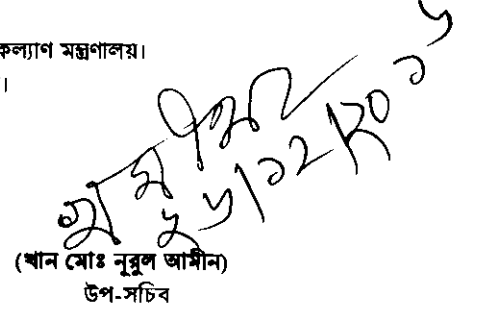 কল্যাণ মন্ত্রণালয়।
।
(খান মোঃ নূরুল আমীন)
উপ-সচিব